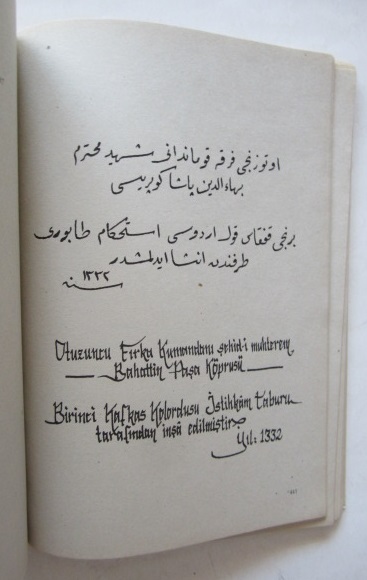 اوتوزنجی فرقه قوماندانی شهید محترم
بهاءالدین پاشا کوپریسی
برنجی قفقاس قول اردوسی استحکام طابوری
طرفندن انشا ایدلمشدر
سنه ١٣٣٢
Otuzuncu Fırka Kumandanı şehid-i muhterem
Bahattin Paşa Köprüsü
Birinci Kafkas Kolordusu İstihkâm Taburu
tarafından inşâ edilmiştir
Yıl: 1332